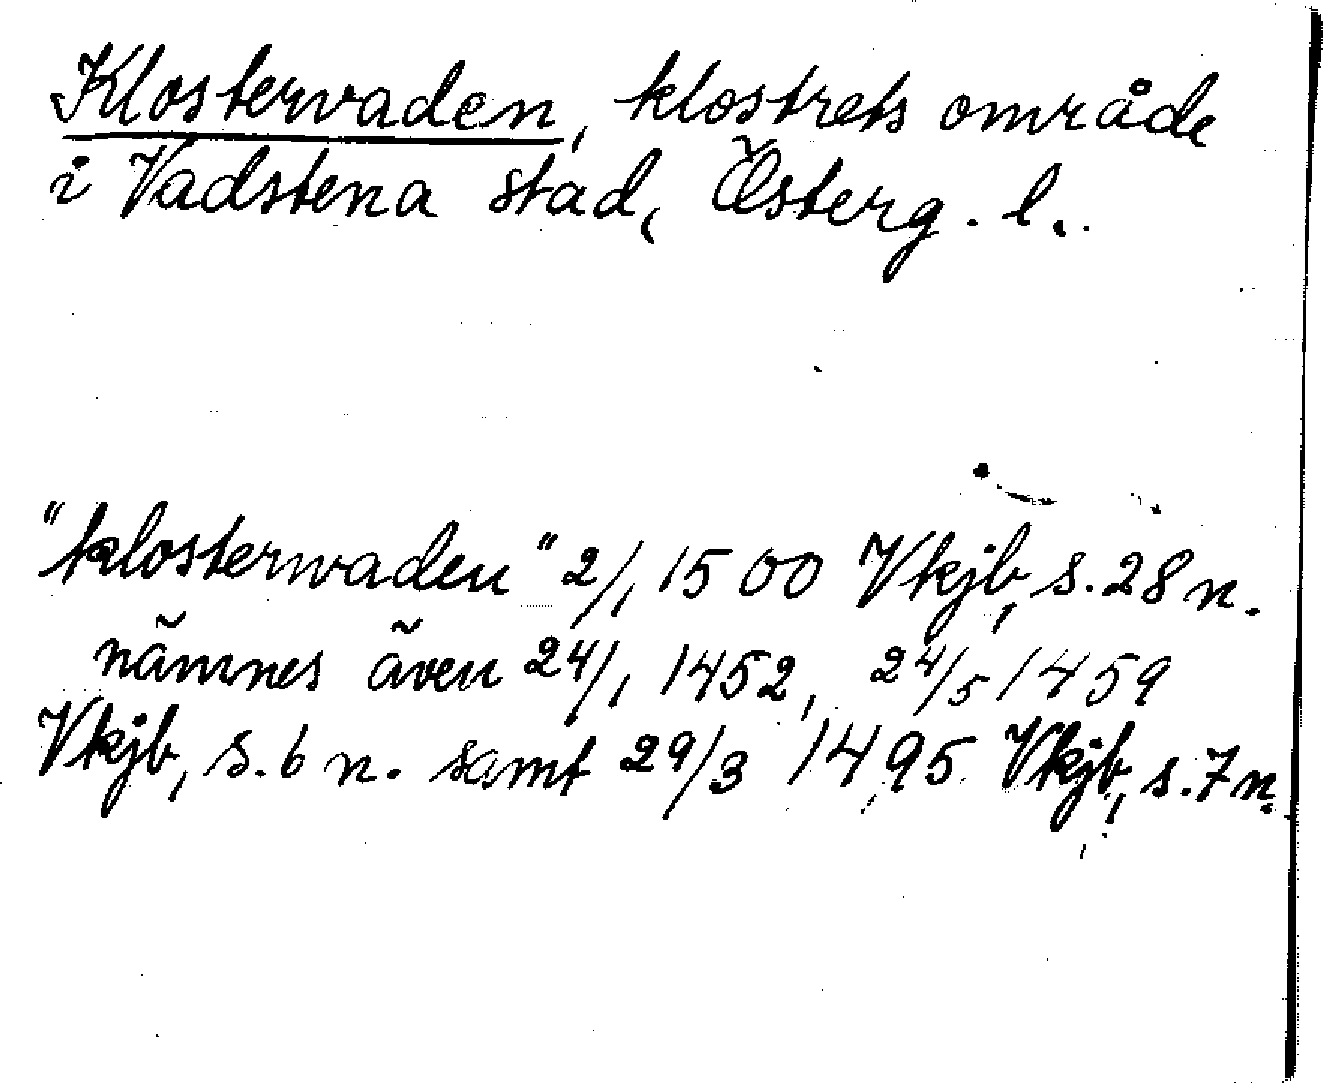 Klostervaden, klostrets område
i Vadstena stad, Österg. l..
"klostervaden" 2/1 1500 Vkjb, s. 28 n.
nämnes även 24/1 1452, 24/5 1459
Vkjb, s. 6 n. samt 29/3 1495 Vkjb, s. 7 n.